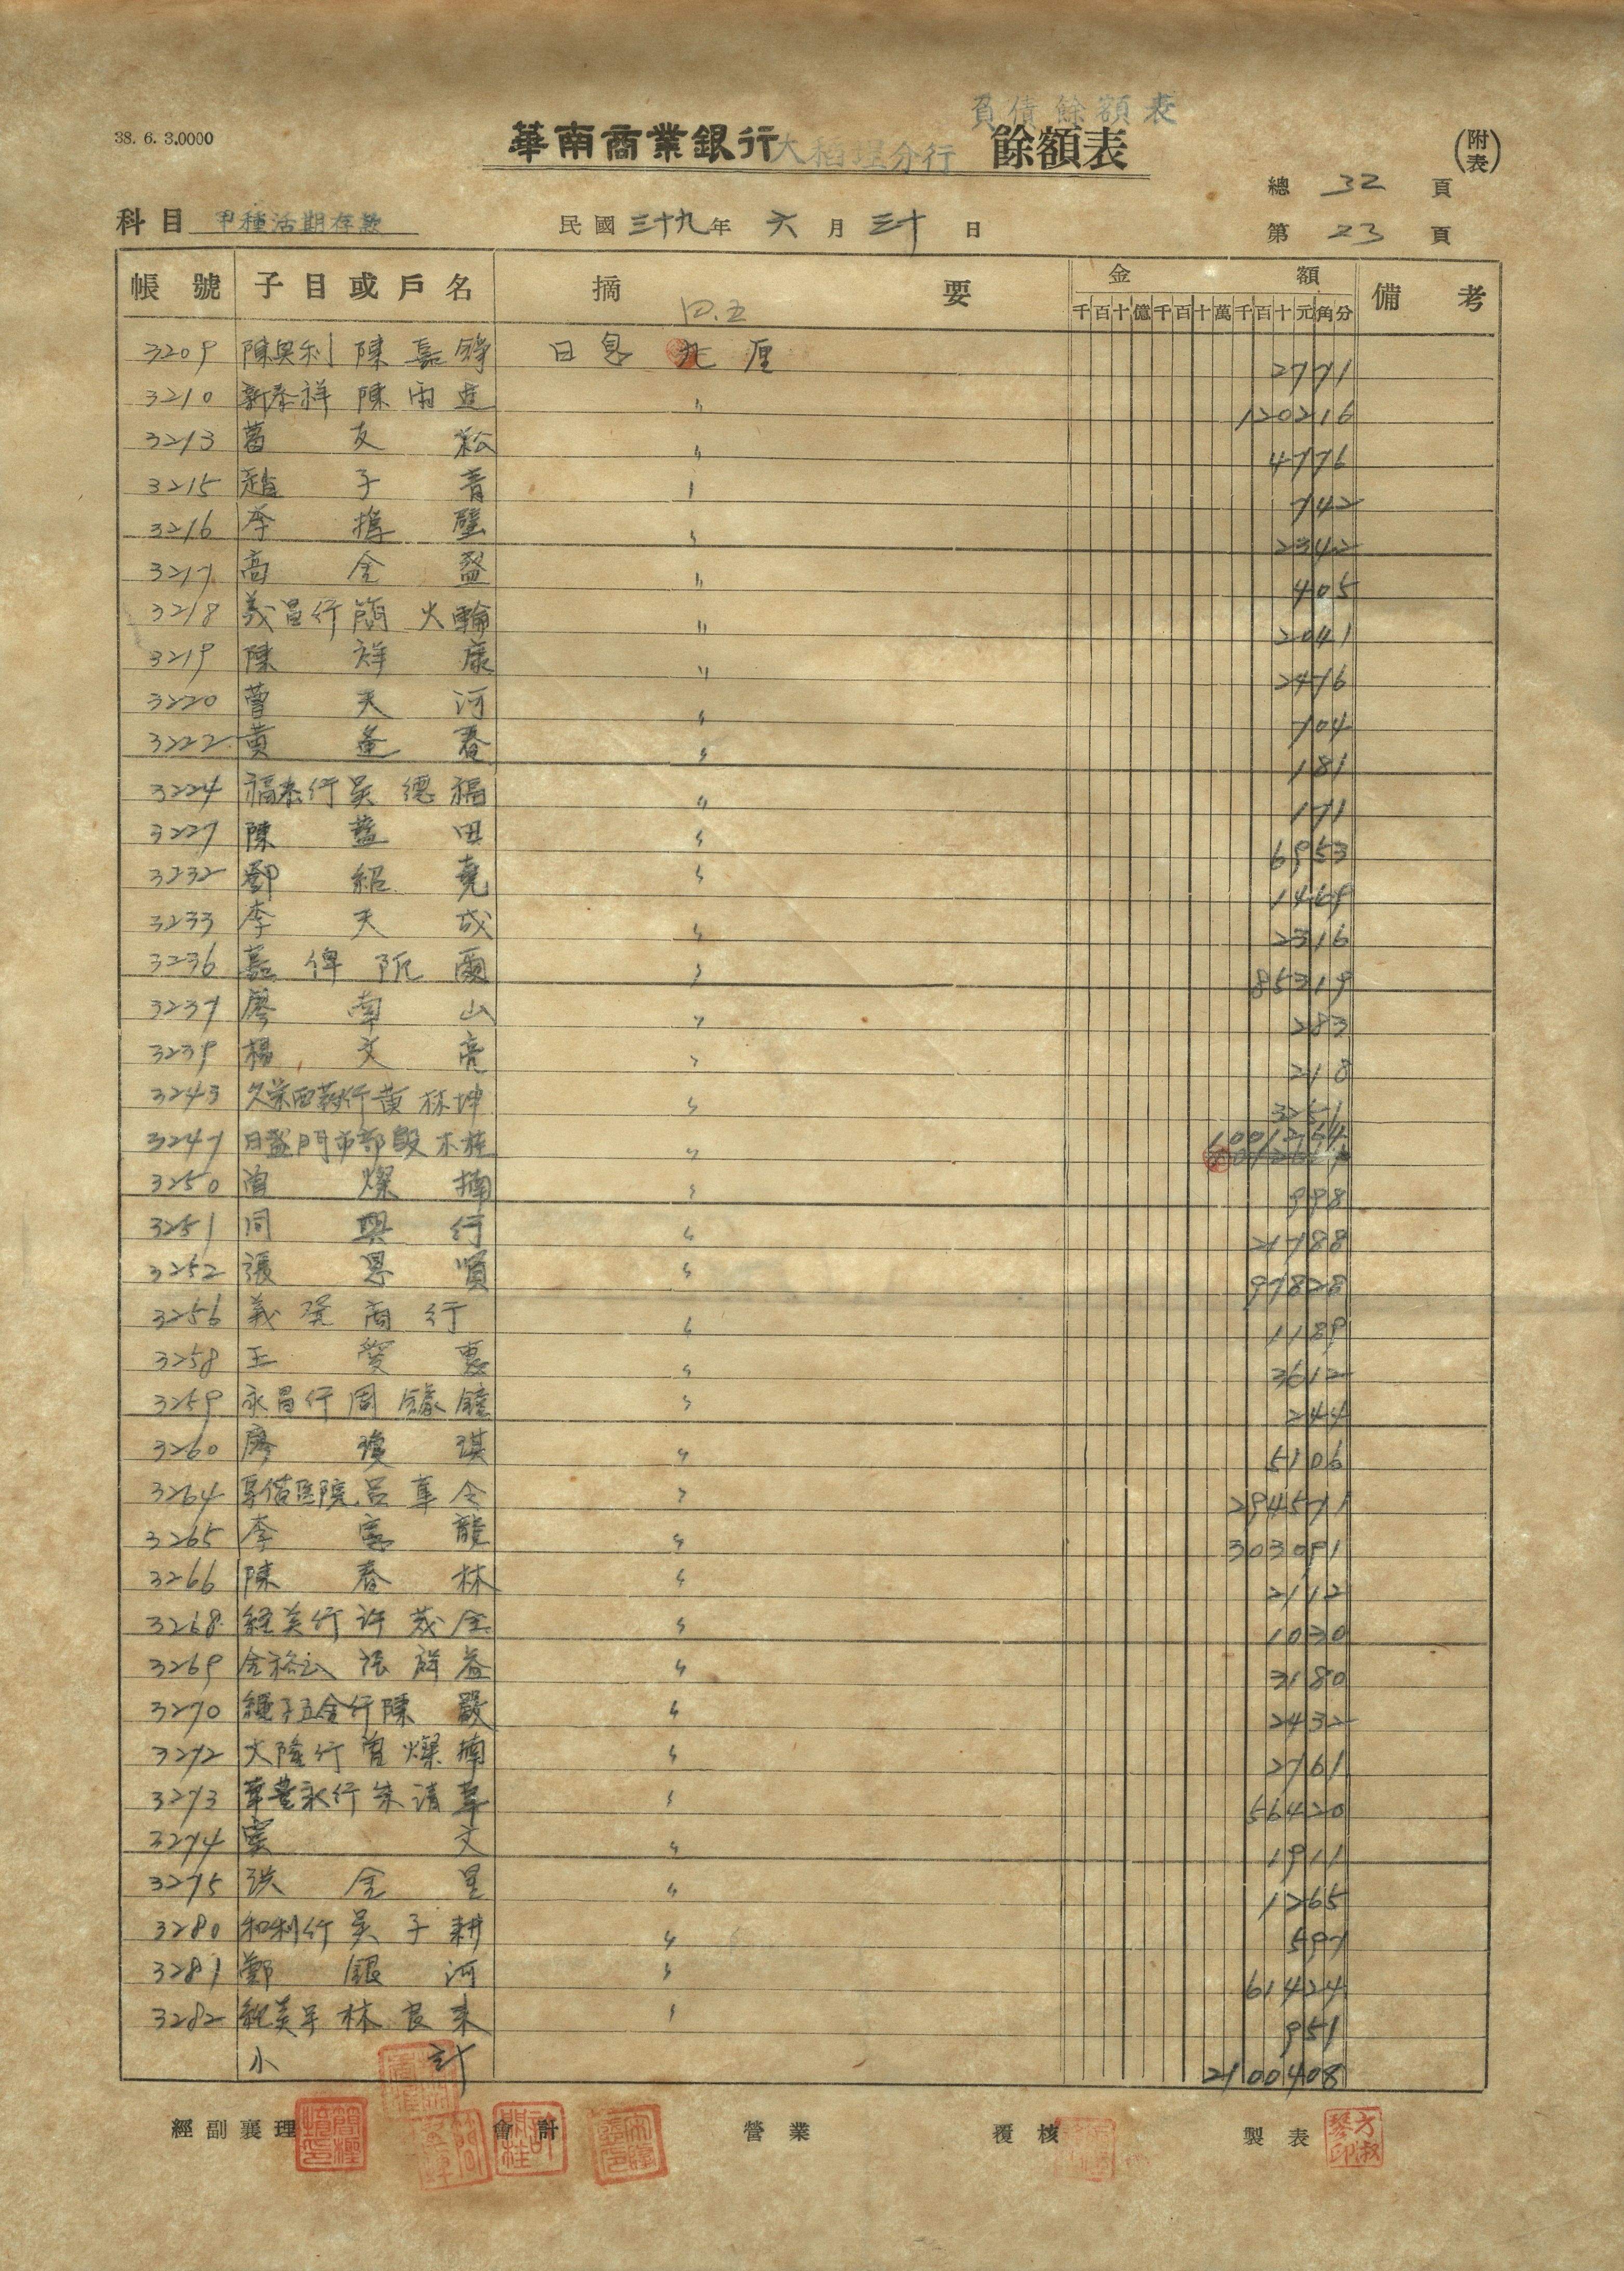 負債餘額表
38. 6. 3.0000
華南商業銀行大稻埕分行 餘額表
(附表)
總 32 頁
科目 甲種活期存款 民國三十九年 六月三十日
第 23 頁
帳號 子目或戶名 摘要 金額 備考
千百十億千百十萬千百十元角分
3209 陳興利 陳嘉鋒 日息 厘 2771
3210 新泰祥 陳雨 〃 120216
3213 葛友松 〃 4776
3215 趙子青 〃 742
3216 李 璧 〃 2342
3217 高金 〃 405
3218 義昌行簡火輪 〃 2041
3219 陳祥康 〃 2476
3220 曹天河 〃 704
3222 黃 春 〃 181
3224 福泰行吳德福 〃 171
3227 陳藍田 〃 6953
3232 鄧紹堯 〃 1469
3233 李天成 〃 2316
3236 嘉俾阮爾 〃 85319
3237 廖南山 〃 283
3239 楊文亮 〃 218
3243 久榮西藥行黃林坤 〃 3251
3247 日盛門市部段木桂 〃 1001254
3250 曾燦楠 〃 998
3251 同興行 〃 21788
3252 張恩順 〃 97828
3256 義 商行 〃 1189
3258 王愛 〃 3612
3259 永昌行周 鐘 〃 244
3260 廖瓊琪 〃 5106
3264 醫院呂 〃 294571
3265 李 龍 〃 303091
3266 陳春林 〃 2112
3268 經美行許茂全 〃 1030
3269 張祥益 〃 3180
3270 五金行陳嚴 〃 2432
3272 大隆行曾燦楠 〃 2761
3273 華豐永行朱清華 〃 56420
3274 文 〃 1911
3275 洪金星 〃 1265
3280 和利行吳子耕 〃 597
3281 鄭銀河 〃 61424
3282 林良來 〃 951
小計 2100408
經副襄理 會計 營業 覆核 製表 方淑琴印